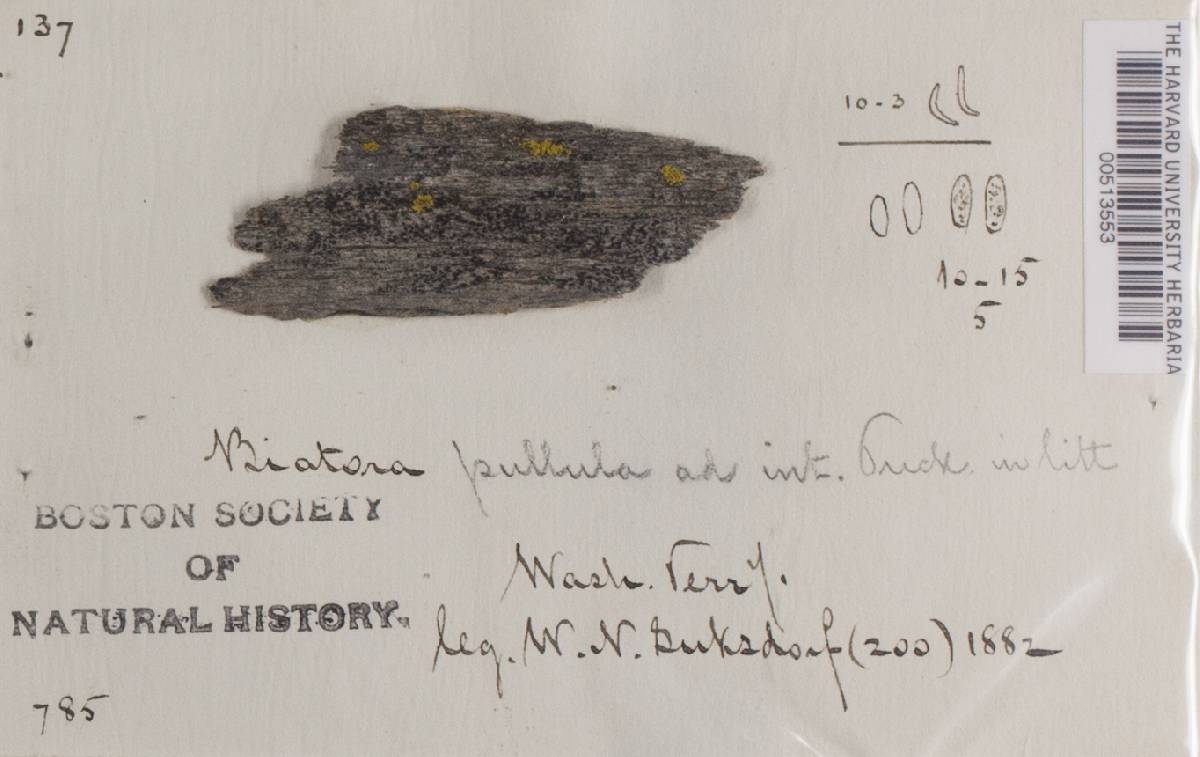 137
10-3
10-15
5
THE HARVARD UNIVERSITY HERBARIA
00513553
Biatora pullula ad int. Tuck. in litt
BOSTON SOCIETY
OF
NATURAL HISTORY.
Wash. Terry.
leg. W. N. Suksdorf (200) 1882
785